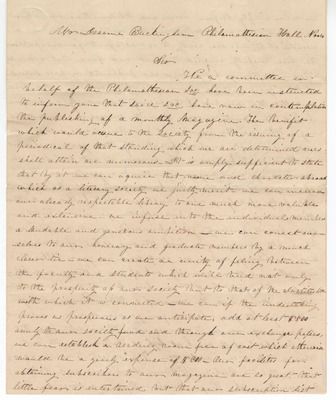 Mr Jerome Buckingham Philomathesian Hall Nov 4
Sir
We a committee in
behalf of the Philomathesian Soc have been instructed
to inform you that said Soc have now in contemplation
the publishing of a monthly Magazine. The benefit
which would accrue to the Society from the issuing of a
periodical of that standing which we are determined ours
shall attain are numerous. It is simply sufficient to state
that by it we can acquire that name and character abroad
which as a literary society we justly merit we can increase
our already respectable library to one much more valuable
and extensive we infuse into the individual members
a laudable and generous ambition we can connect our-
selves to our honorary and graduate members by a much
closer tie we can create an unity of feeling between
the faculty and students which will tend not only
to the prosperity of our society but to that of the institution
with which it is connected we can if the undertaking
proves as prosperous as we anticipate, add at least $100
annually to our society fund and through our exchange papers,
we can establish a reading room free of cost which otherwise
would be a yearly expense of Our facilities for
obtaining subscribers to our magazine are so great that
little fear is entertained but that our subscription list